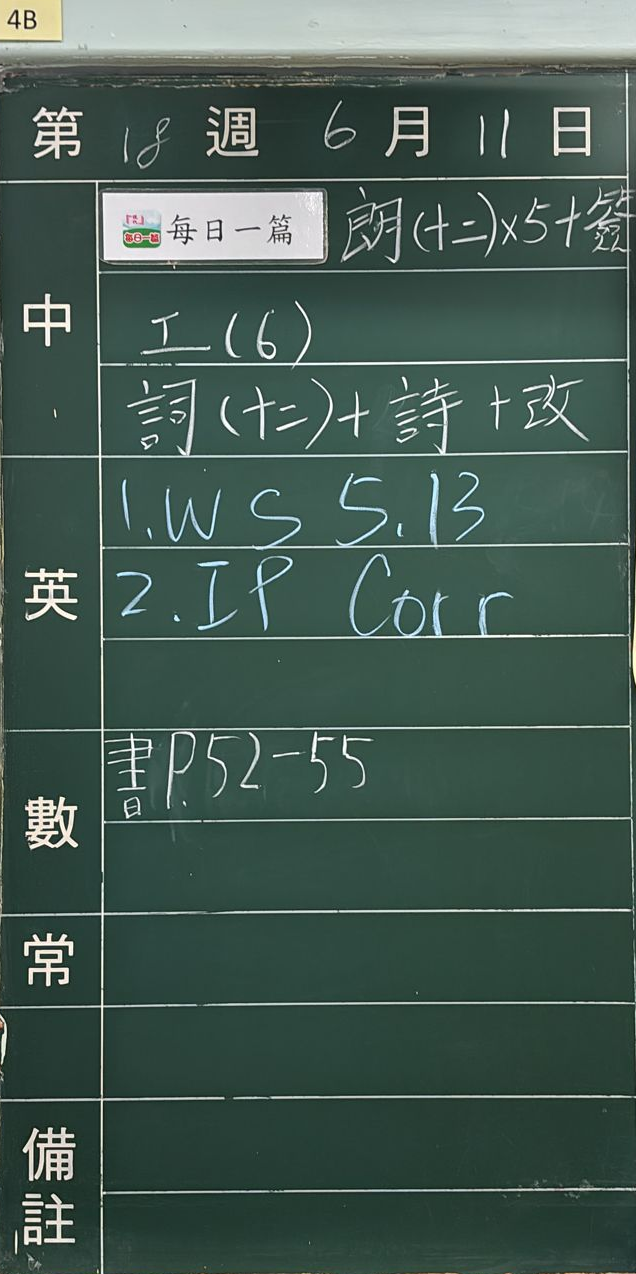 4B
第 18 週 6 月 11 日
中
每日一篇 朗(十二)×5+簽
工(6)
詞(十二)+詩+改
英
1.WS 5.13
2.IP Corr
數
書P.52-55
常
備註